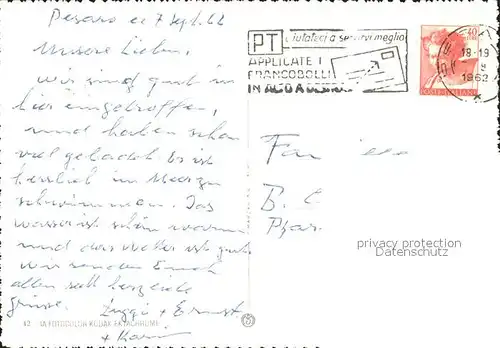 Pesaro, 7 Sept. 62
Unsere Lieben,
wir sind gut in
hier eingetroffen,
und haben schon
viel gebadet. Es ist
herrlich im Meer zu
schwimmen. Das
Wasser ist schön warm
und das Wetter ist gut.
wir senden Euch
allen sehr herzende
Grüsse. + Ernst
+ Karin
PT aiutateci a servirvi meglio
APPLICATE I
FRANCOBOLLI
IN ALTO A DESTRA
40
18-19
1962
POSTE ITALIANE
Fam
B. C
Pfar
privacy protection
Datenschutz
42 FOTOCOLOR KODAK EKTACHROME